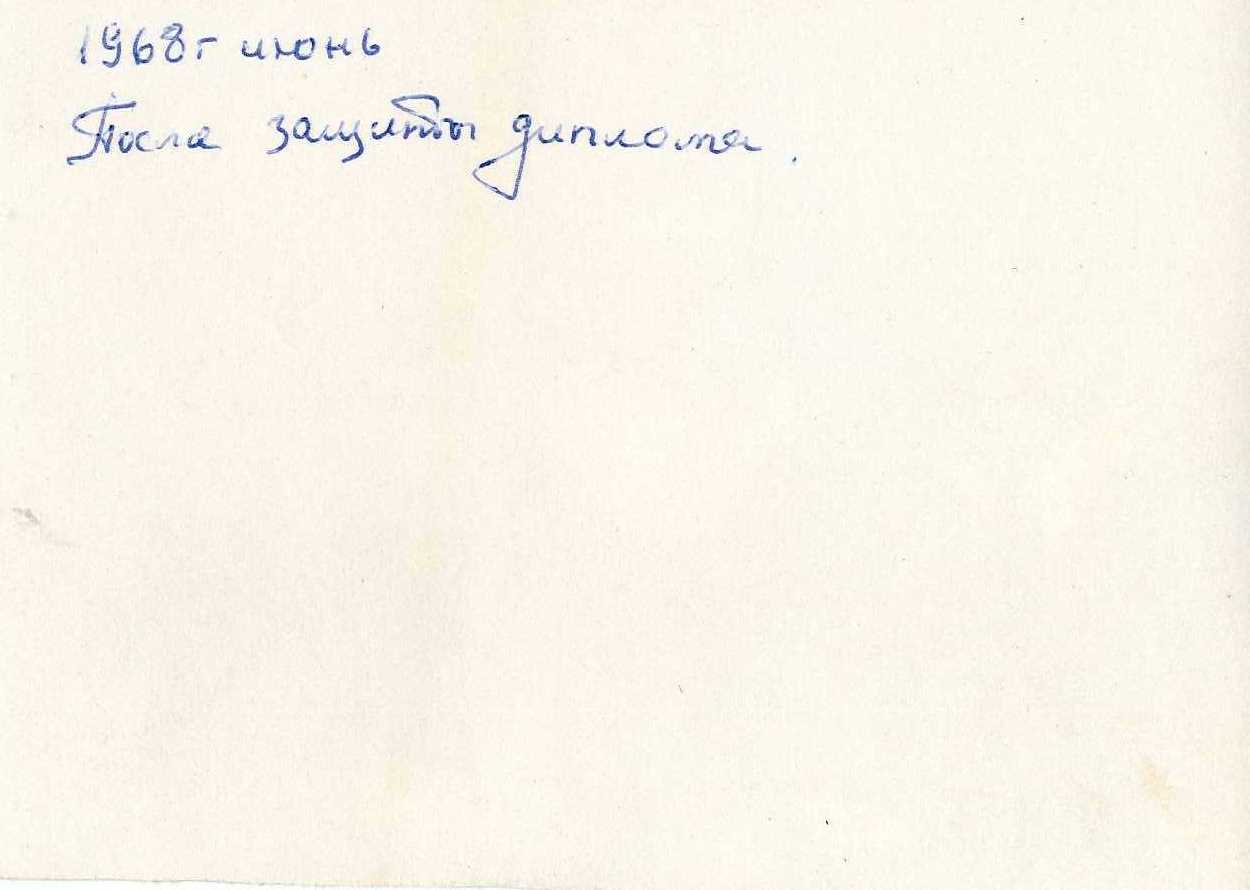 1968г июнь
После защиты диплома.